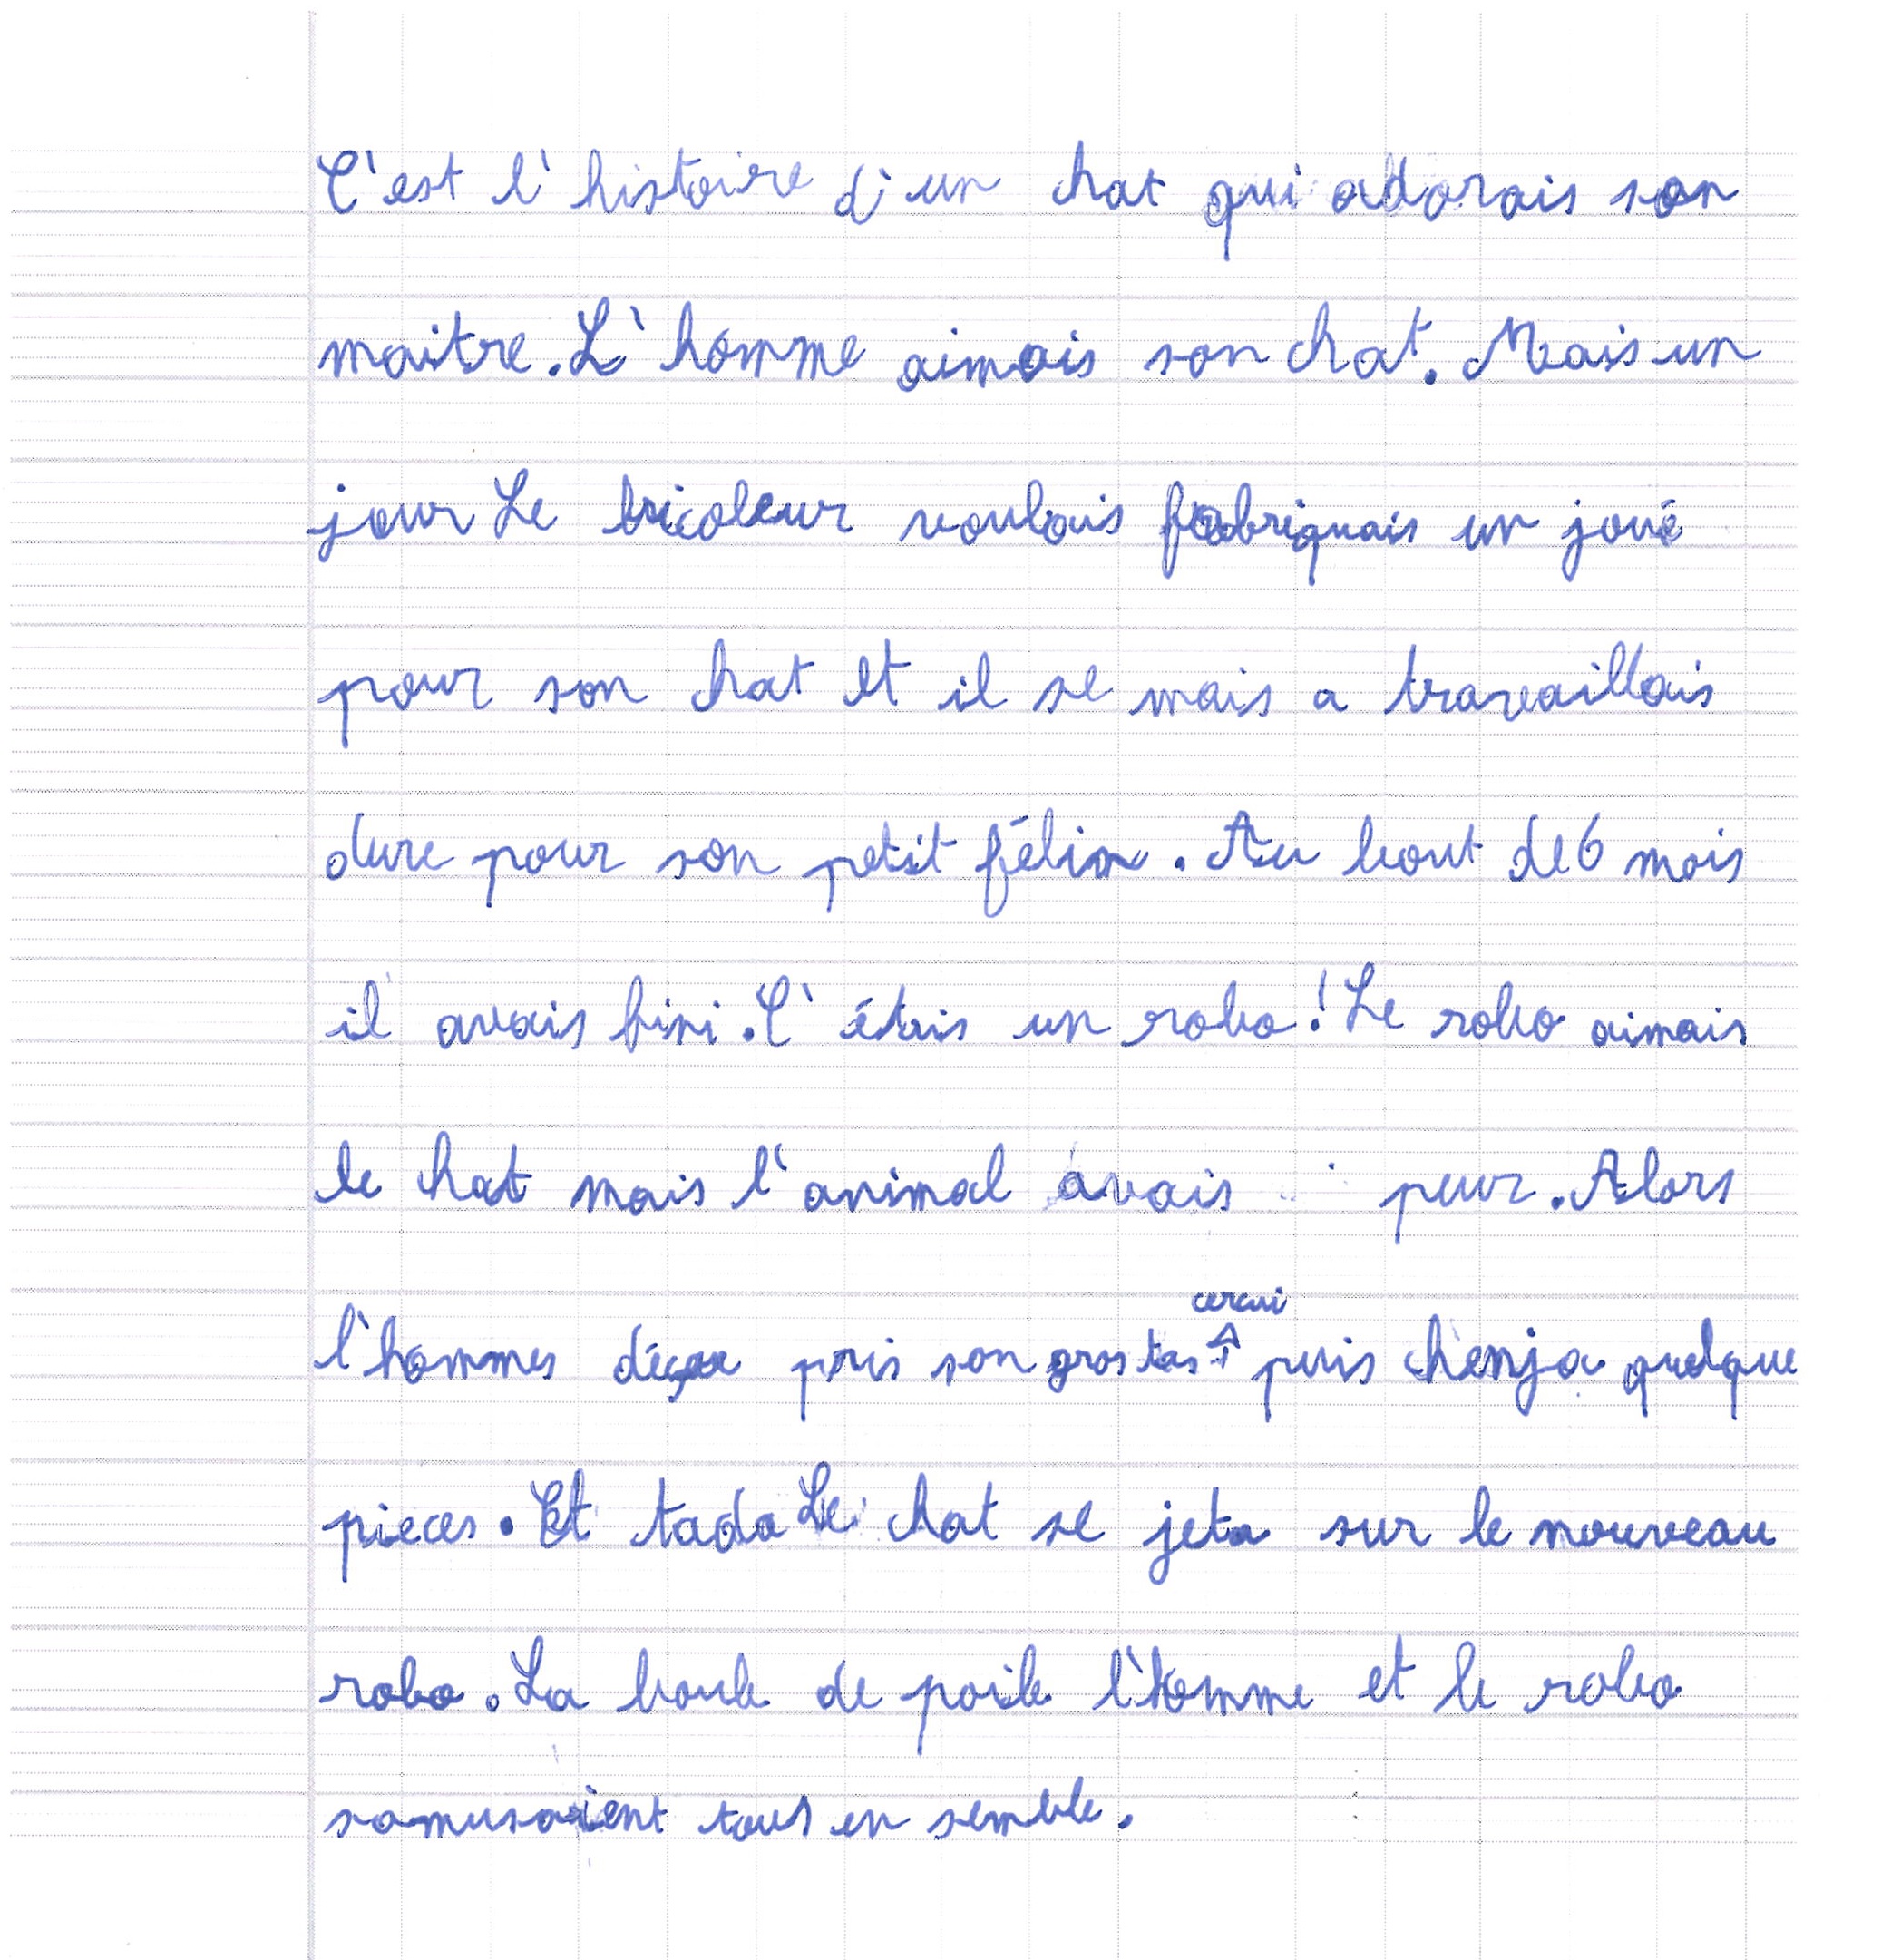 C'est l'histoire d'un chat qui adorais son
maitre. L'homme aimais son chat. Mais un
jour Le bricoleur voulais fabriquais un joué
pour son chat et il se mais a travaillais
dure pour son petit félin. Au bout de 6 mois
il avais fini. C'étais un robo! Le robo aimais
le chat mais l'animal avais peur. Alors
cervai
l'hommes déçu pris son gros tas puis chenja quelque
pieces. Et tada Le chat se jeta sur le nouveau
robo. La boule de poile l'homme et le robo
samusaient tous en semble.